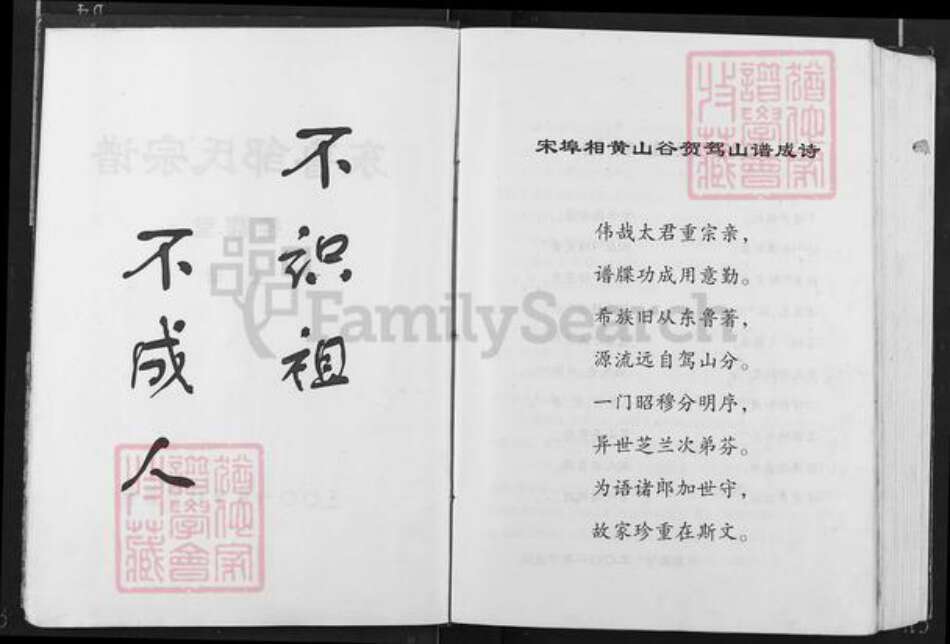 不识祖
不成人
宋埠相黄山谷贺驾山谱成诗
伟哉太君重宗亲，
谱牒功成用意勤。
希族旧从东鲁著，
源流远自驾山分。
一门昭穆分明序，
异世芝兰次弟芬。
为语诸郎加世守，
故家珍重在斯文。
FamilySearch